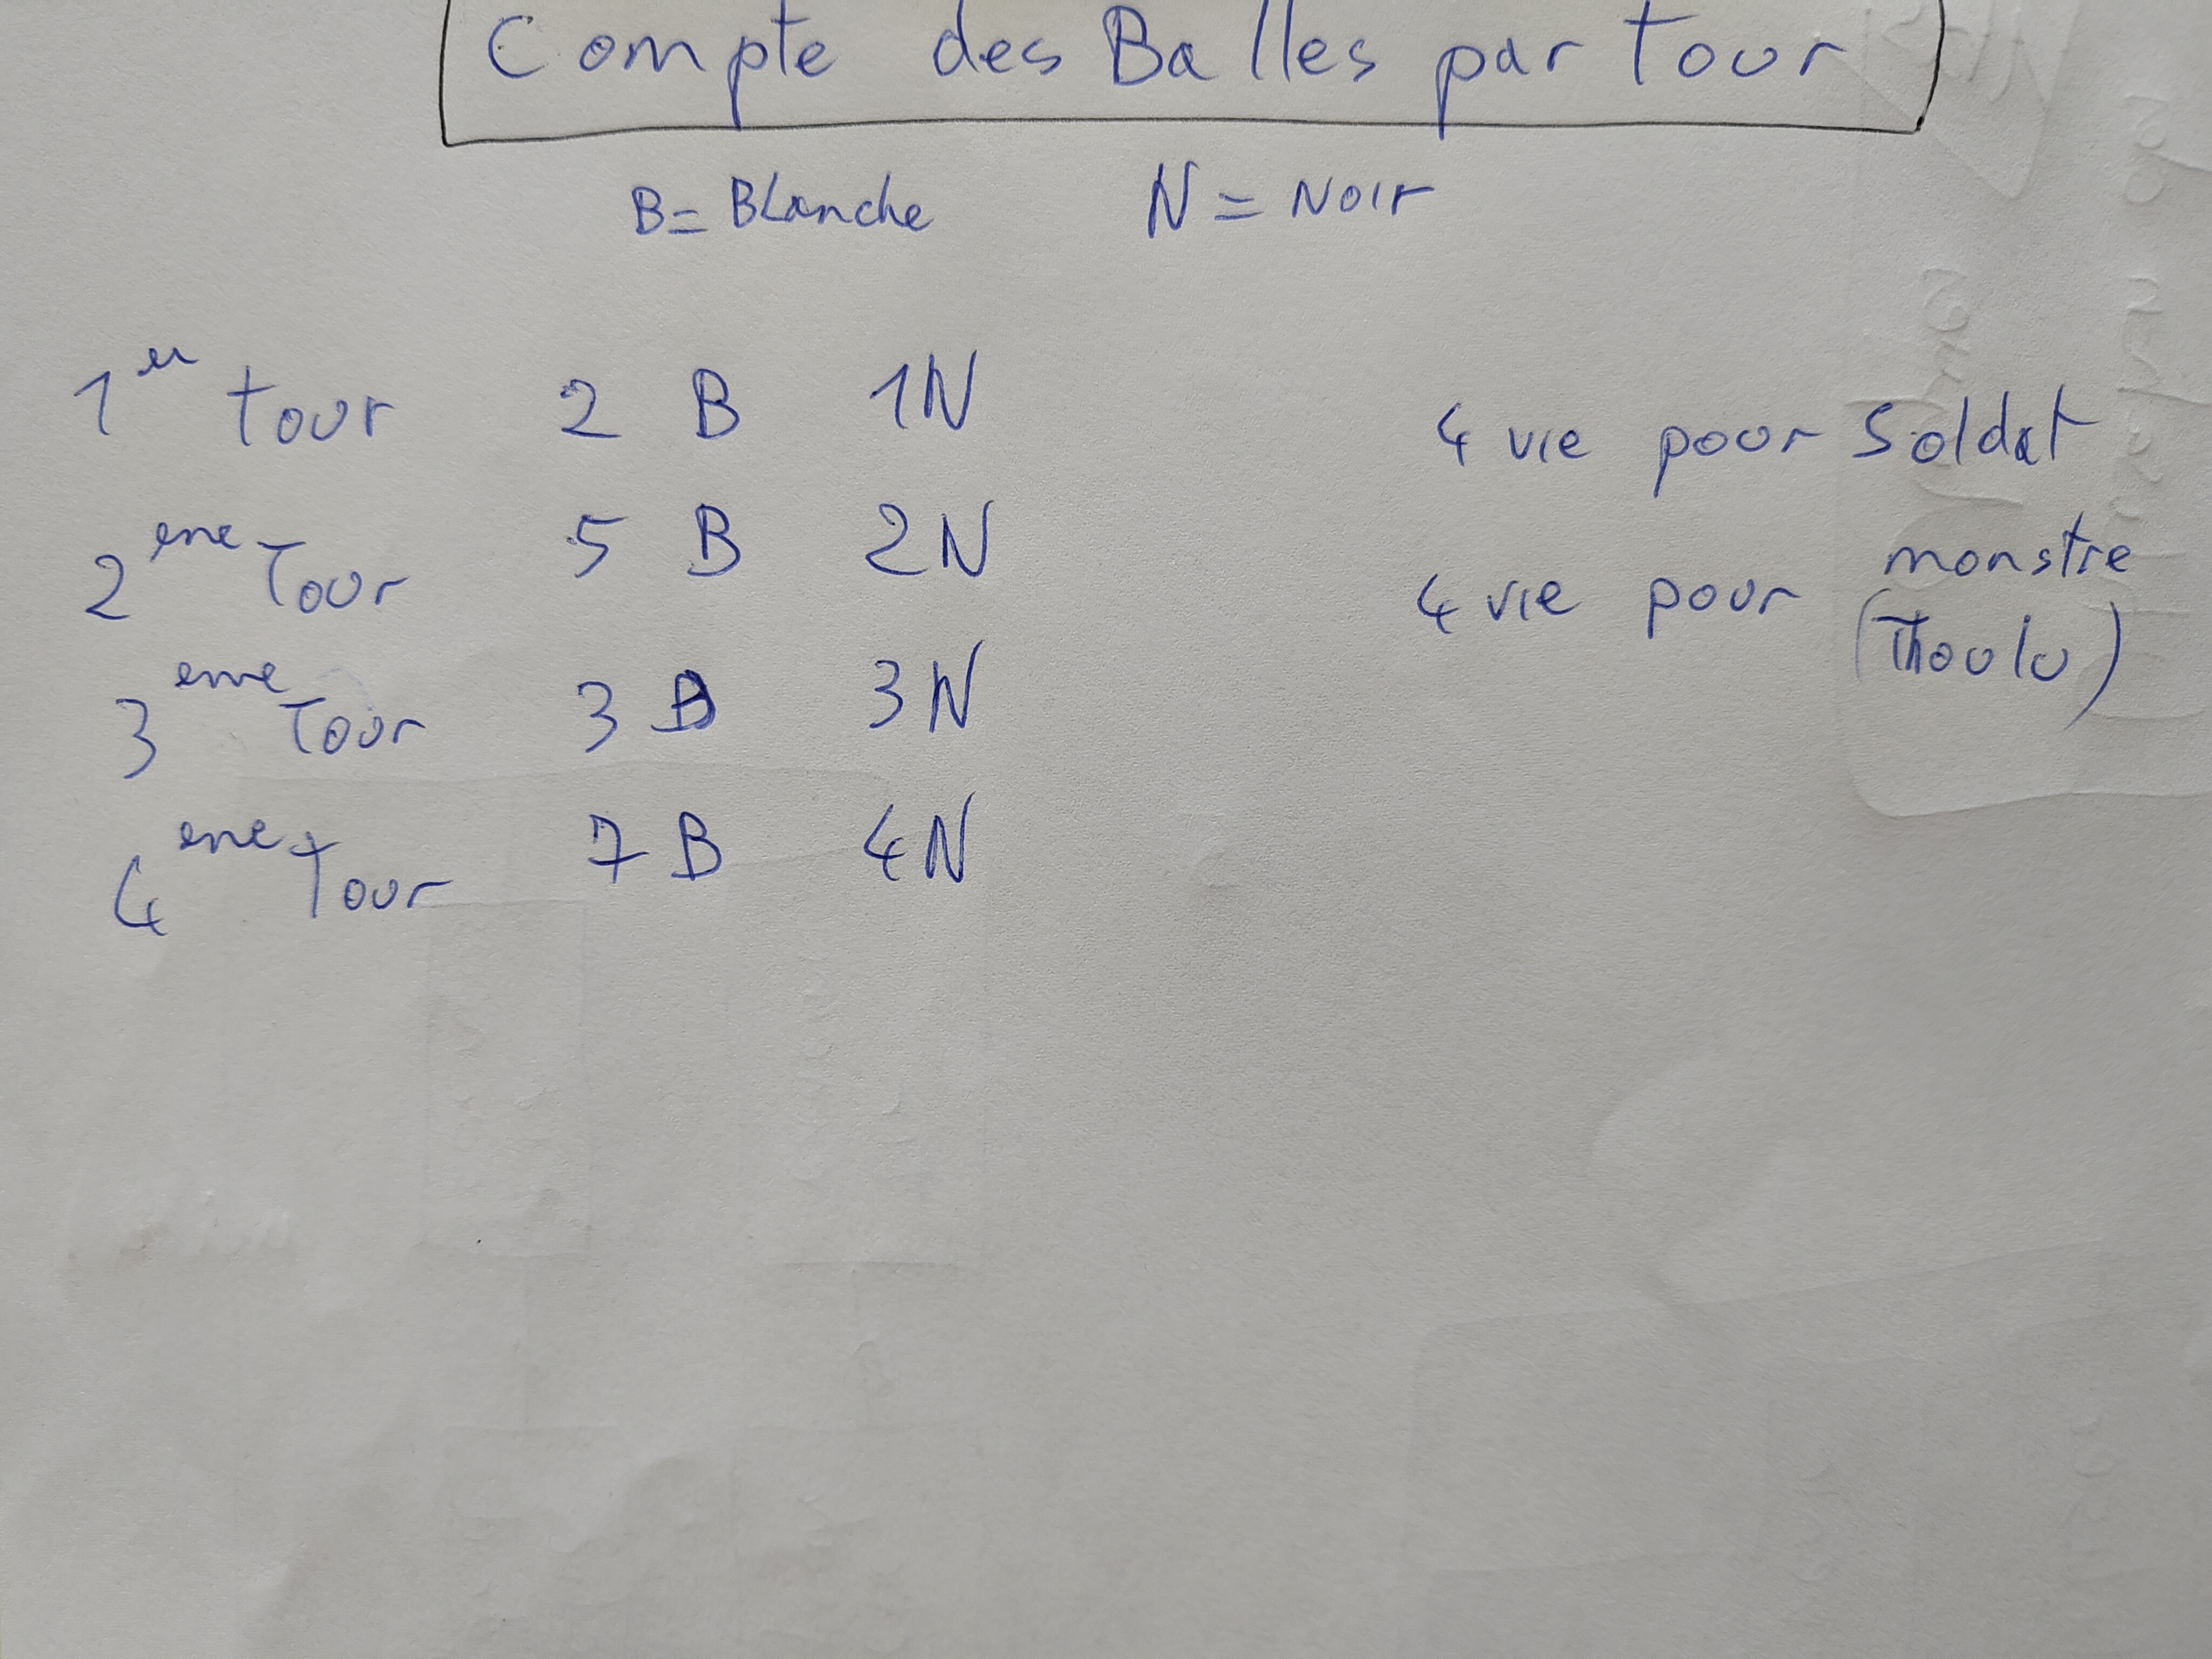 Compte des Balles par tour
B = Blanche N = Noir
1er tour 2 B 1N
2eme Tour 5 B 2N
3eme Tour 3 B 3N
4eme Tour 7 B 4N
4 vie pour Soldat
4 vie pour monstre
(Thoulu)